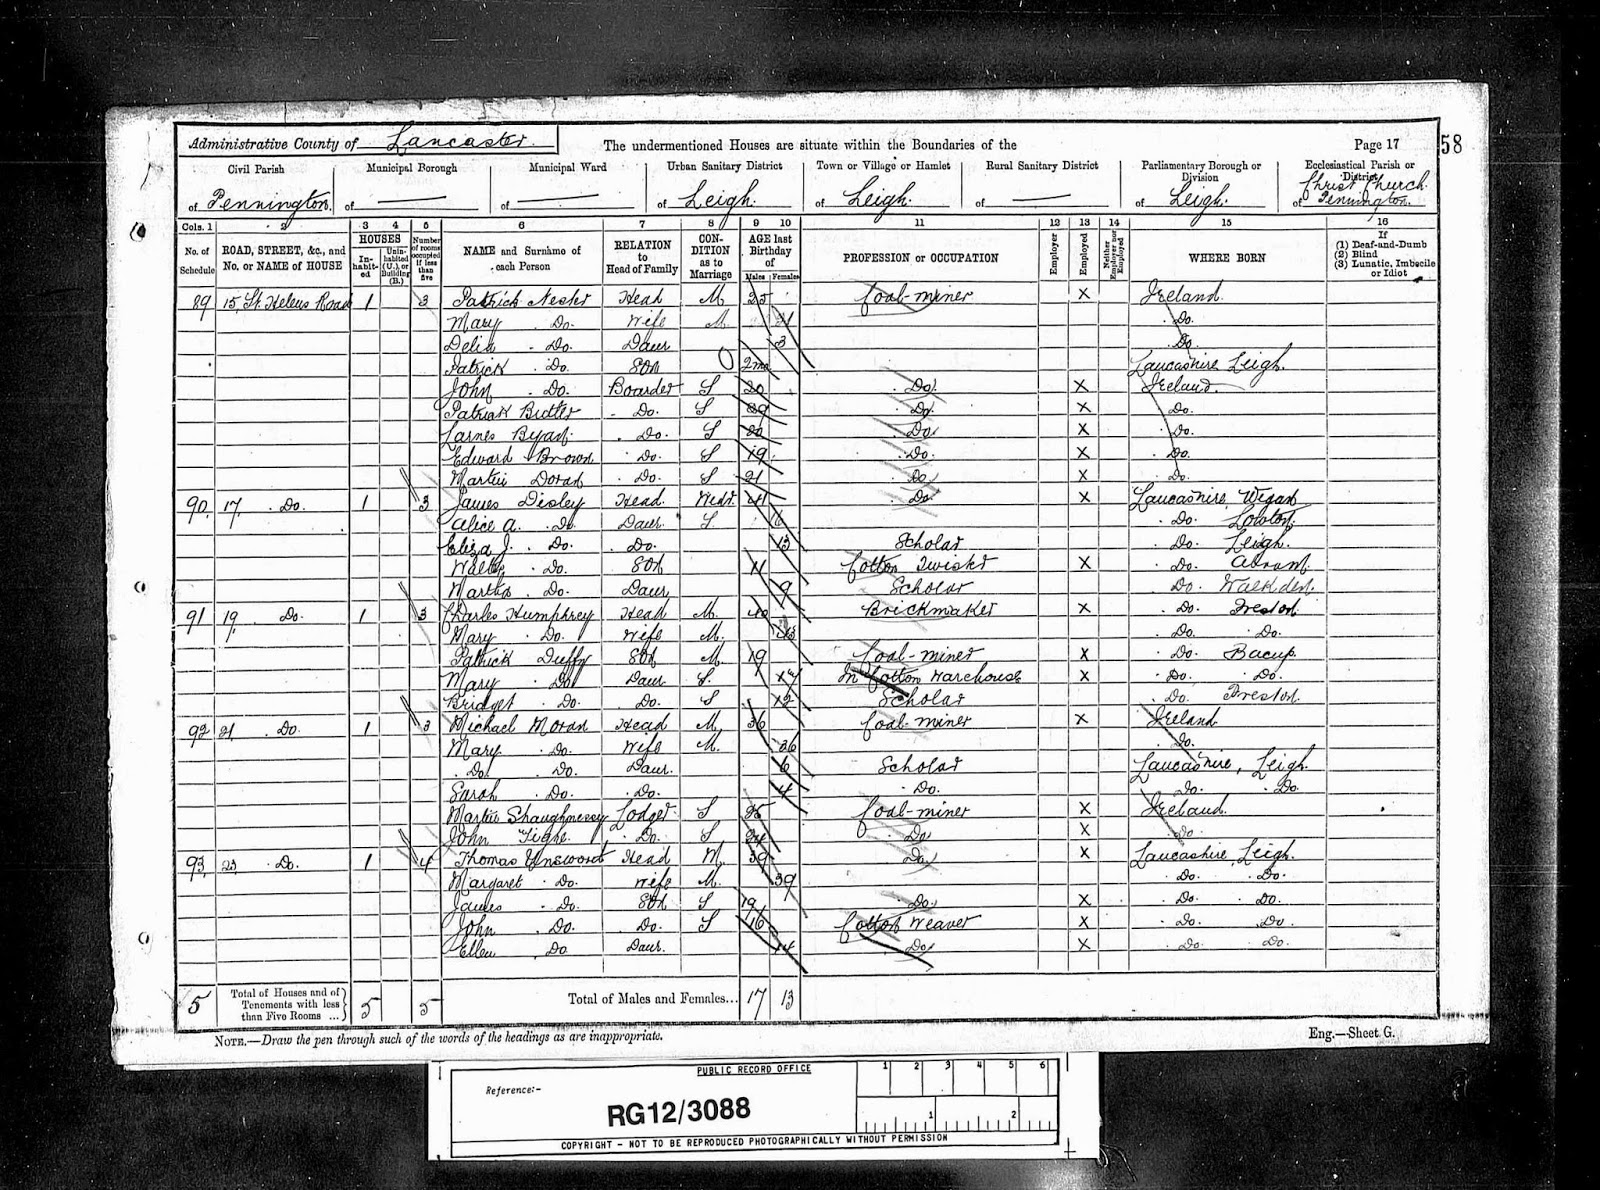 Administrative County of Lancaster. The undermentioned Houses are situate within the Boundaries of the Page 17 58
Civil Parish Municipal Borough Municipal Ward Urban Sanitary District Town or Village or Hamlet Rural Sanitary District Parliamentary Borough or Division Ecclesiastical Parish or District
of Pennington. of — of — of Leigh. of Leigh. of — of Leigh. of Christ Church Pennington.
Cols. 1 2 3 4 5 6 7 8 9 10 11 12 13 14 15 16
No. of Schedule ROAD, STREET, &c., and No. or NAME of HOUSE HOUSES In-habit-ed Unin-habited (U.), or Building (B.) Number of rooms occupied if less than five NAME and Surname of each Person RELATION to Head of Family CON-DITION as to Marriage AGE last Birthday of Males Females PROFESSION or OCCUPATION Employer Employed Neither Employer nor Employed WHERE BORN If (1) Deaf-and-Dumb (2) Blind (3) Lunatic, Imbecile or Idiot
89 15, St. Helens Road 1 3 Patrick Head M 25 Coal-miner X Ireland
Mary Do. Wife M. 21 Do.
Delia Do. Daur 3 Do
Patrick Do. Son 2 mo Lancashire Leigh.
John Do. Boarder S 20 Do. X Ireland
Patrick Do. S 29 Do. X Do.
Do. S 20 Do. X Do.
Edward Brown Do. S 19 Do. X Do.
Martin Doran Do. S 21 Do. X Do.
90. 17. Do. 1 3 James Disley Head Widr. 41 Do. X Lancashire, Wigan
Alice A. Do. Daur. S Do. Lowton.
Eliza J. Do. Do. 13 Scholar Do. Leigh.
Do. Son 11 Cotton Twister X Do. Abram.
Martha Do. Daur 9 Scholar Do. Walkden.
91 19. Do. 1 3 Charles Humphrey Head M. 40 Brickmaker X Do. Preston
Mary Do. Wife M. 43 Do. Do.
Patrick Duffy Son M 19 Coal-miner X Do. Bacup.
Mary Do Daur S 17 In Cotton Warehouse X Do. Do.
Bridget Do. Do. S 12 Scholar Do. Preston.
92 21. Do. 1 3 Michael Moran Head M 36 Coal-miner X Ireland
Mary Do. Wife M. 36 Do.
Do. Do. Daur. 6 Scholar Lancashire, Leigh
Sarah Do. Do. 4 Do. Do. Do.
Martin Shaughnessy Lodger S 25 Coal-miner X Ireland.
John Tighe Do. S 24 Do. X Do.
93. 23. Do. 1 4 Thomas Unsworth Head M. 39 Do. X Lancashire, Leigh.
Margaret Do. Wife M. 39 Do. Do.
James Do. Son S 19 Do. X Do. Do.
John Do. Do. S 16 Cotton Weaver X Do. Do.
Ellen Do Daur. 14 Do. X Do. Do.
5 Total of Houses and of Tenements with less than Five Rooms ... 5 5 Total of Males and Females... 17 13
NOTE.—Draw the pen through such of the words of the headings as are inappropriate. Eng.—Sheet G.
PUBLIC RECORD OFFICE 1 2 3 4 5 6
Reference:-
RG12/3088 1 2
COPYRIGHT - NOT TO BE REPRODUCED PHOTOGRAPHICALLY WITHOUT PERMISSION